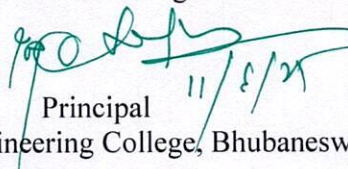 11/8/25
Principal
ineering College, Bhubanesw